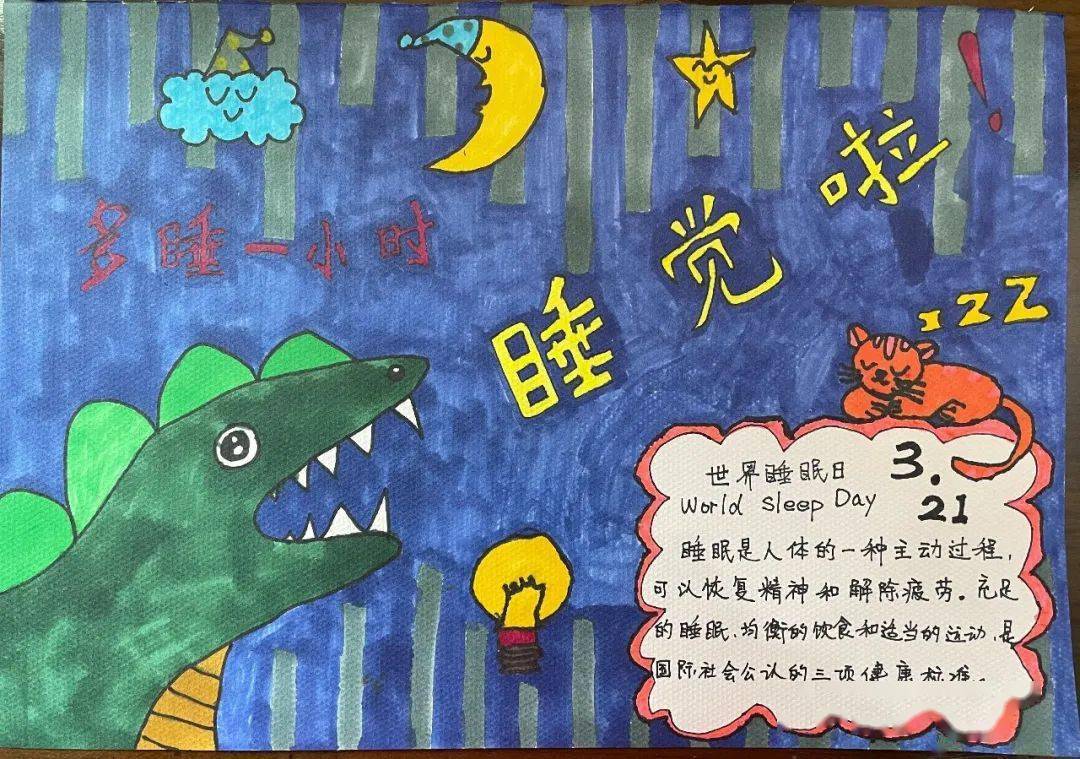 多睡一小时
睡觉啦!
zZZ
世界睡眠日
World Sleep Day
3.
21
睡眠是人体的一种主动过程,
可以恢复精神和解除疲劳。充足
的睡眠、均衡的饮食和适当的运动,是
国际社会公认的三项健康标准。